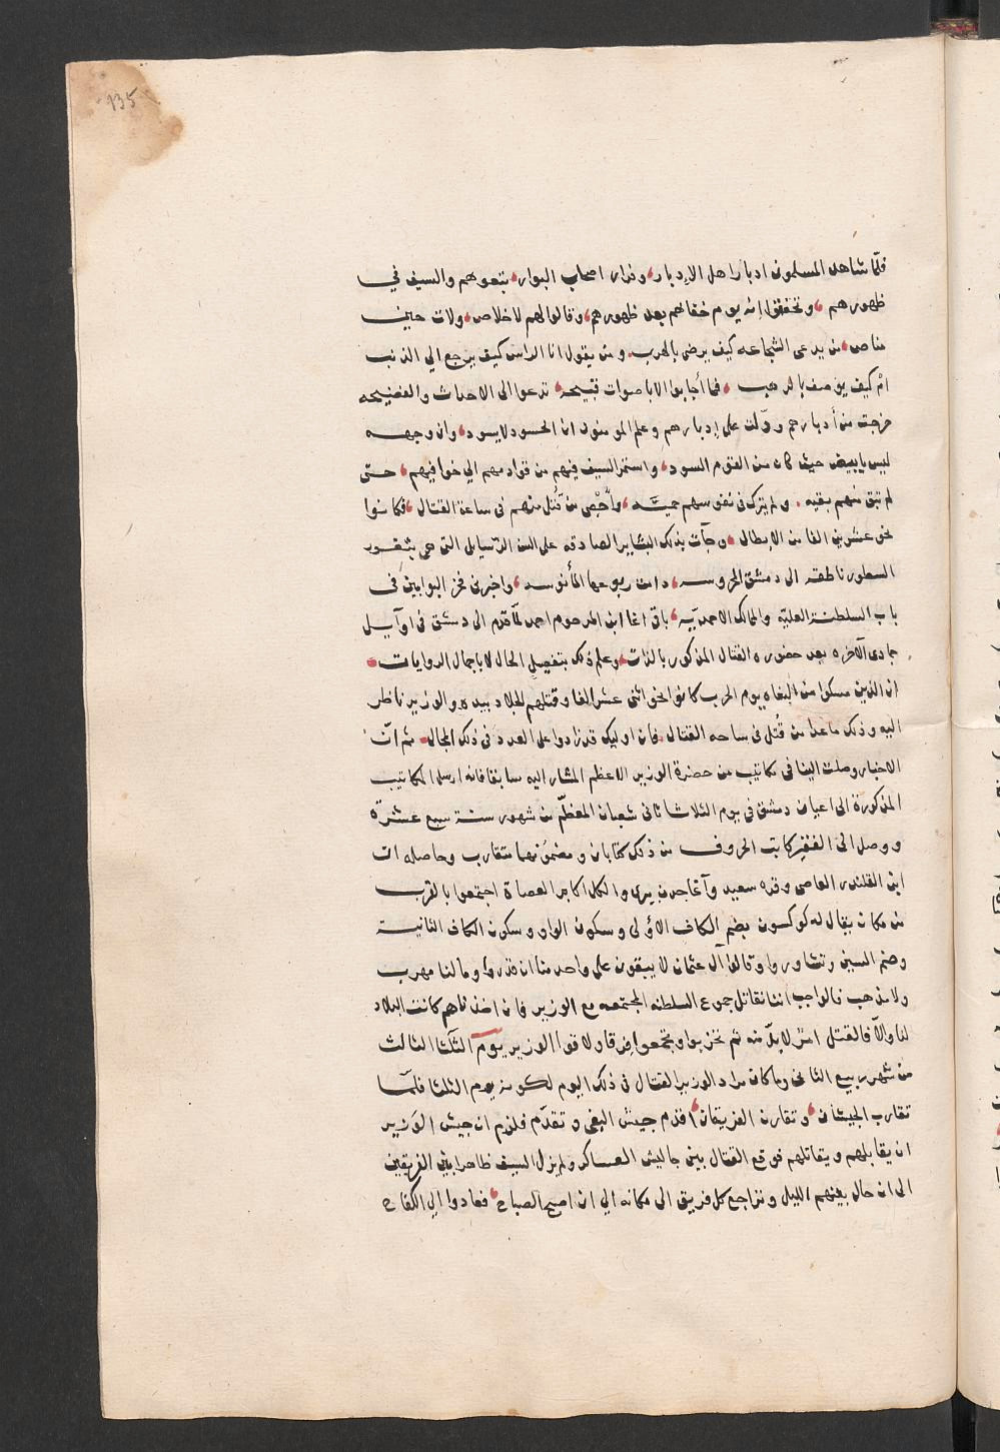 135
فلمّا شاهد المسلمون ادبار اهل الإدبار، وفرار اصحاب البوار، تبعوهم والسيف في
ظهورهم، وتحققوا انه يوم خفائهم بعد ظهورهم، وقالوا لهم لاخلاص، ولات حين
مناص، من يدعى الشجاعه كيف يرضى بالهرب، ومن يقول انا الراس كيف يرجع الي الذنب
ام كيف يوصف بالرهب، فما أجابوا الا باصوات قبيحه، تدعوا الى الاحداث والفضيحه
خرجت من أدبارهم وولت على إدبارهم وعلم المومنون ان الحسود لايسود، وان وجهه
ليس بابيض حيث كان من القوم السود، واستمر السيف فيهم من قوادمهم الي خوافيهم، حتى
لم تبق منهم بقيه، ولم يترك في نفوسهم حميّه، وأحصى من قُتل منهم في ساعة القتال، فكانوا
نحو عشرين الفا من الابطال، وجآت بذلك البشاير الصادقه على السن الرسايل التي هي بثغور
السطور ناطقه الى دمشق المحروسه، دامت ربوعها المأنوسه، واخبرني فخر البوابين في
باب السلطنة العليّه والممالك الاحمديّه، باقي اغا ابن المرحوم احمد لمّا قدم الى دمشق في اوآيل
جمادى الآخره بعد حضوره القتال المذكور بالذات، وعلم ذلك بتفصيل الحال لا باجمال الروايات،
ان الذين مسكوا من البغاه يوم الحرب كانوا نحو اثنى عشر الفا وقتلهم الجلاد بيده والوزير ناظر
اليه وذلك ماعدا من قُتل في ساحه القتال، فان اوليك قد زادوا على العدد في ذلك المجال، ثم انّ
الاخبار وصلت الينا في مكاتيب من حضرة الوزير الاعظم المشار اليه سابقا فانه ارسل المكاتيب
المذكورة الى اعيان دمشق في يوم الثلاثا ثاني شعبان المعظّم من شهور سنة سبع عشرة
ووصل الى الفقير كاتب الحروف من ذلك كتابان ومضمونهما متقارب وحاصله ان
ابن القلندر العاصي وقره سعيد وآغاجدن بيرى والكل اكابر العصاة اجتمعوا بالقرب
من مكان يقال له كوكسون بضم الكاف الاولى وسكون الواو وسكون الكاف الثانية
وضم السين وتشاوروا وقالوا آل عثمان لا يبقون على واحد منا ان قدروا ومالنا مهرب
ولامذهب فالواجب اننا نقاتل جموع السلطنه المجتمعه مع الوزير فان اخذناهم كانت البلاد
لنا والاّ فالقتل امر لابدّ منه ثم تحزبوا وتجمعوا فرقا ولاقوا الوزير يوم الثلثا الثالث
من شهر ربيع الثاني وما كان مراد الوزير القتال في ذلك اليوم لكونه يوم الثلثا فلمّا
تقارب الجيشان، وتقارن الفريقان، اقدم جيش البغي وتقدّم فلزم ان جيش الوزير
ان يقابلهم ويقاتلهم فوقع القتال بين جاليش العساكر ولم يزل السيف ظاهرا بين الفريقين
الى ان حال بينهم الليل وتراجع كل فريق الى مكانه الي ان اصبح الصباح، فعادوا الي الكفاح